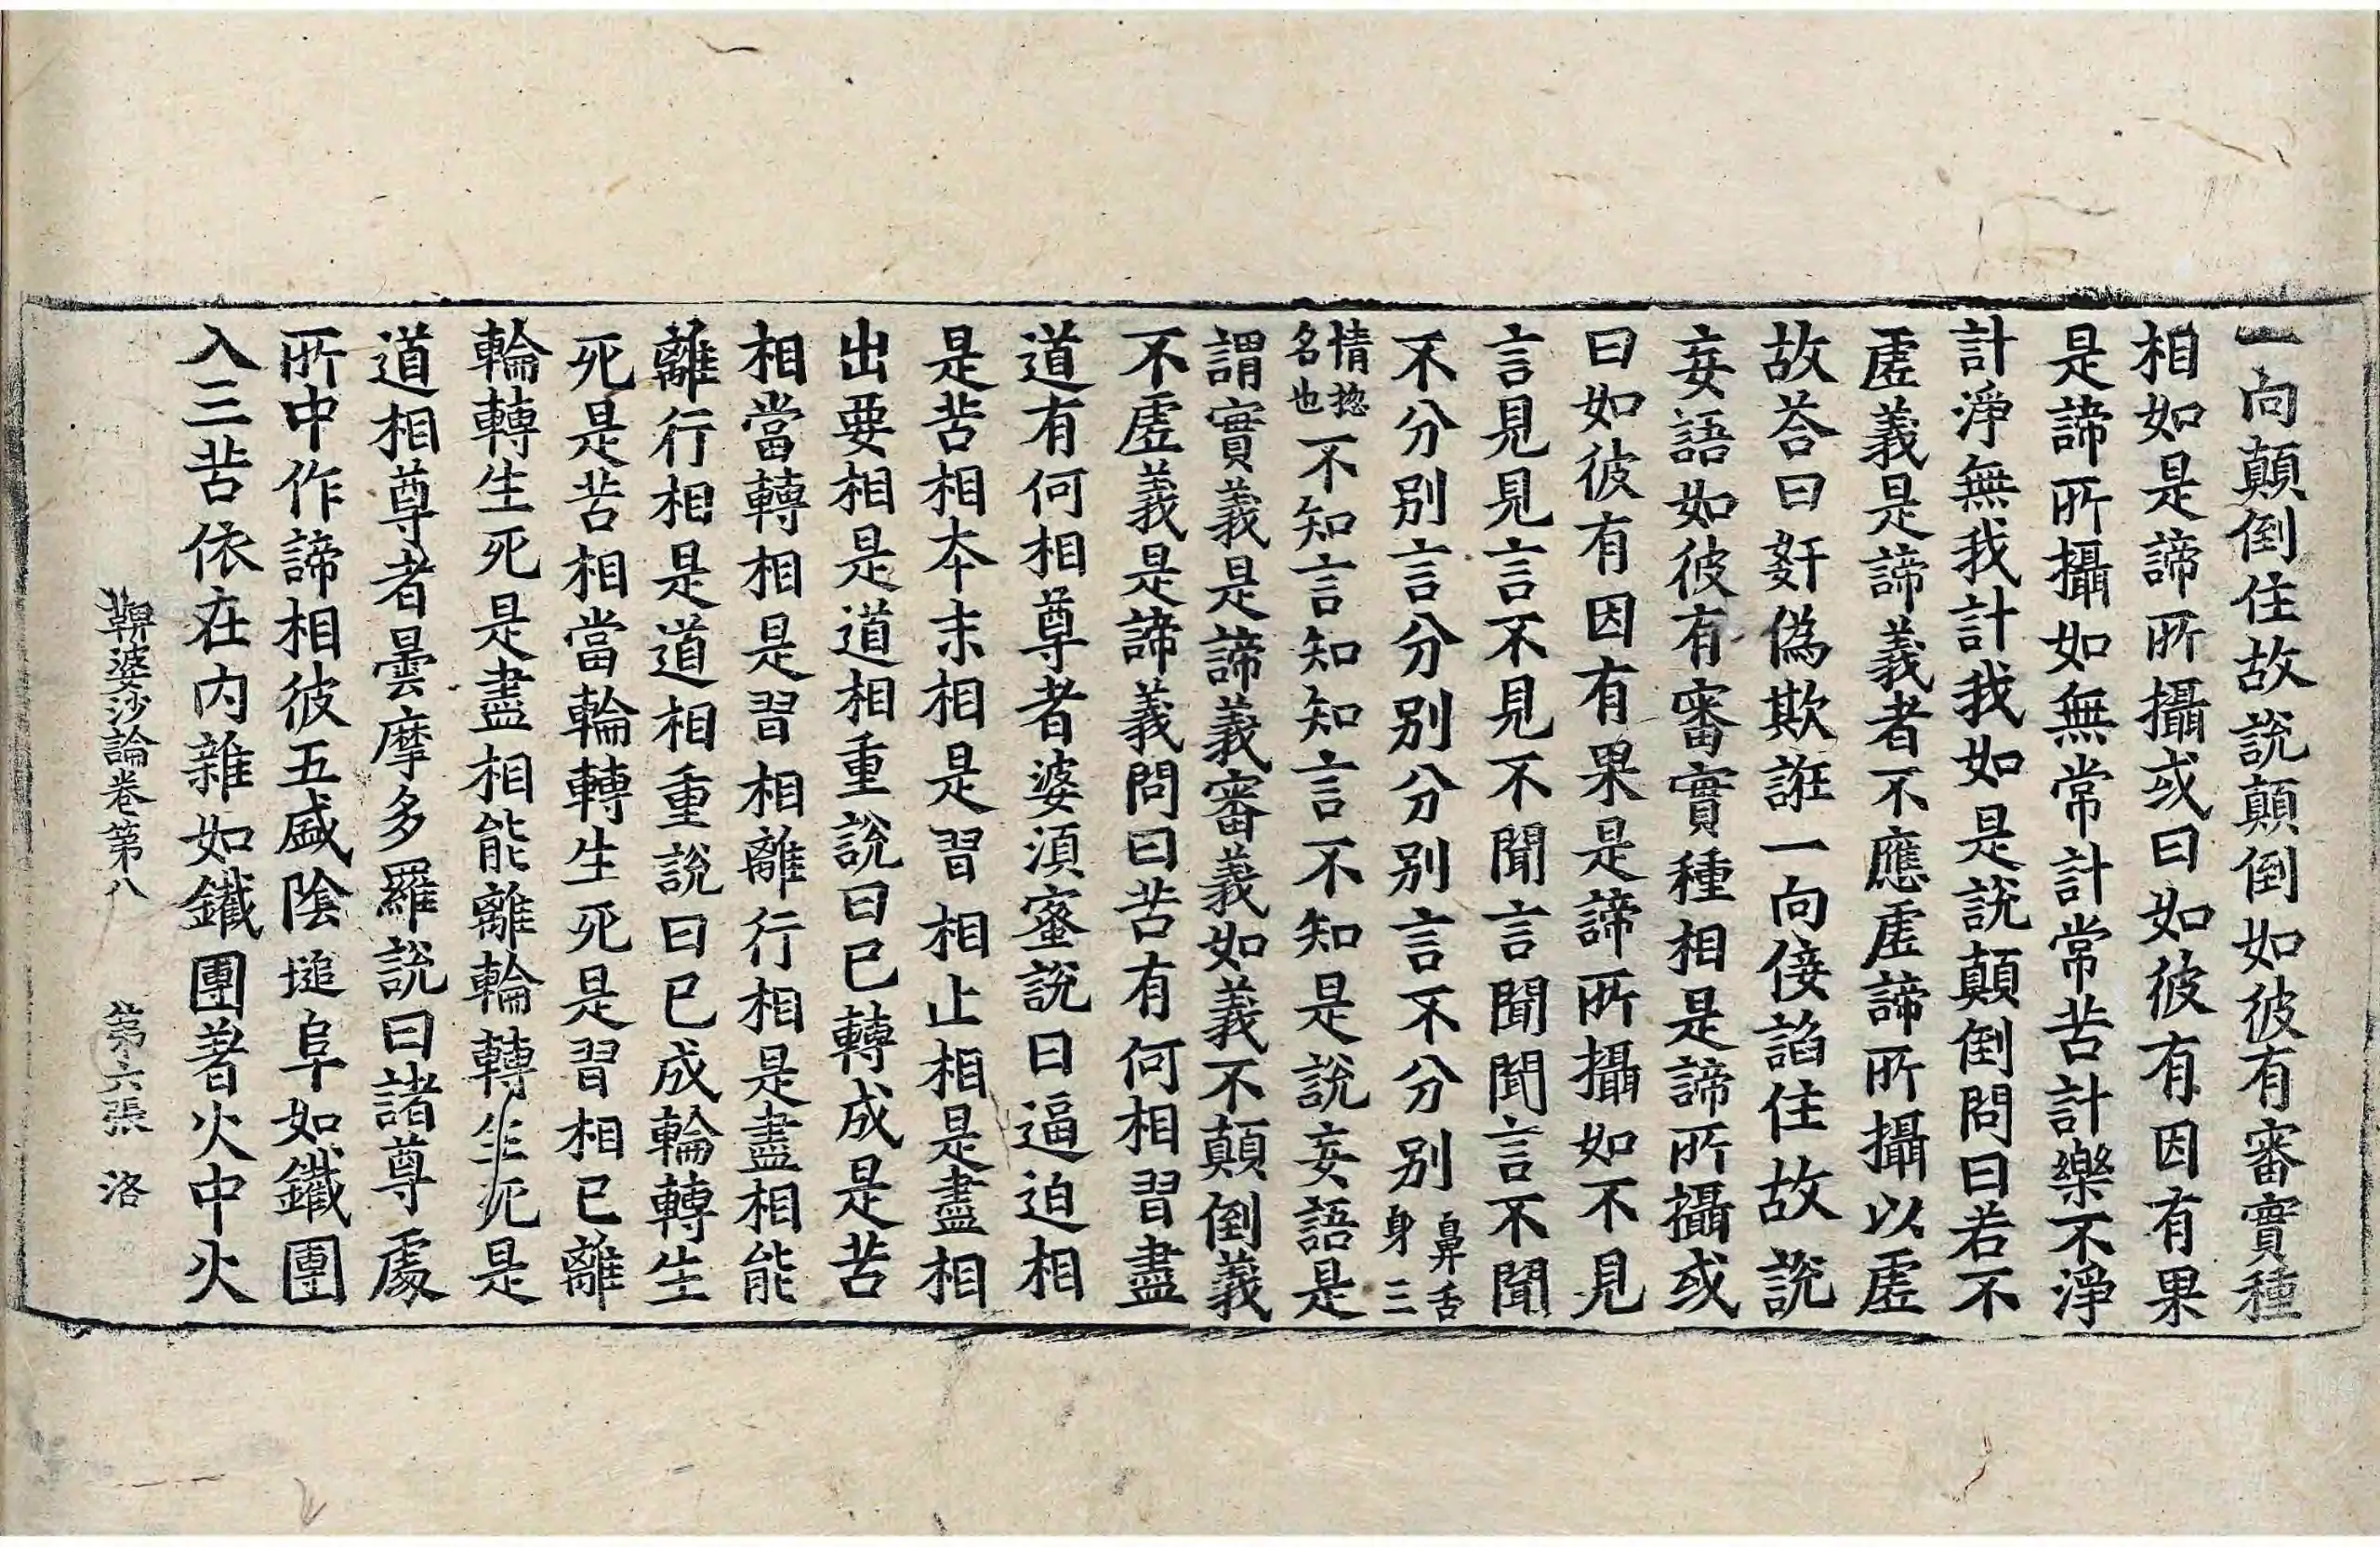 一向顛倒住故說顛倒如彼有審實種
相如是諦所攝或曰如彼有因有果
是諦所攝如無常計常苦計樂不淨
計淨無我計我如是說顛倒問曰若不
虛義是諦義者不應虛諦所攝以虛
故荅曰姧偽欺誑一向侫諂住故說
妄語如彼有審實種相是諦所攝或
曰如彼有因有果是諦所攝如不見
言見見言不見不聞言聞聞言不聞
不分別言分別分別言不分別鼻舌身三
情揔名也不知言知知言不知是說妄語是
謂實義是諦義審義如義不顛倒義
不虛義是諦義問曰苦有何相習盡
道有何相尊者婆須蜜說曰逼迫相
是苦相本末相是習相止相是盡相
出要相是道相重說曰已轉成是苦
相當轉相是習相離行相是盡相能
離行相是道相重說曰已成輪轉生
死是苦相當輪轉生死是習相已離
輪轉生死是盡相能離輪轉生死是
道相尊者曇摩多羅說曰諸尊處
所中作諦相彼五盛陰塠阜如鐵團
入三苦依在內雜如鐵團著火中火
鞞婆沙論卷第八 第六張 洛